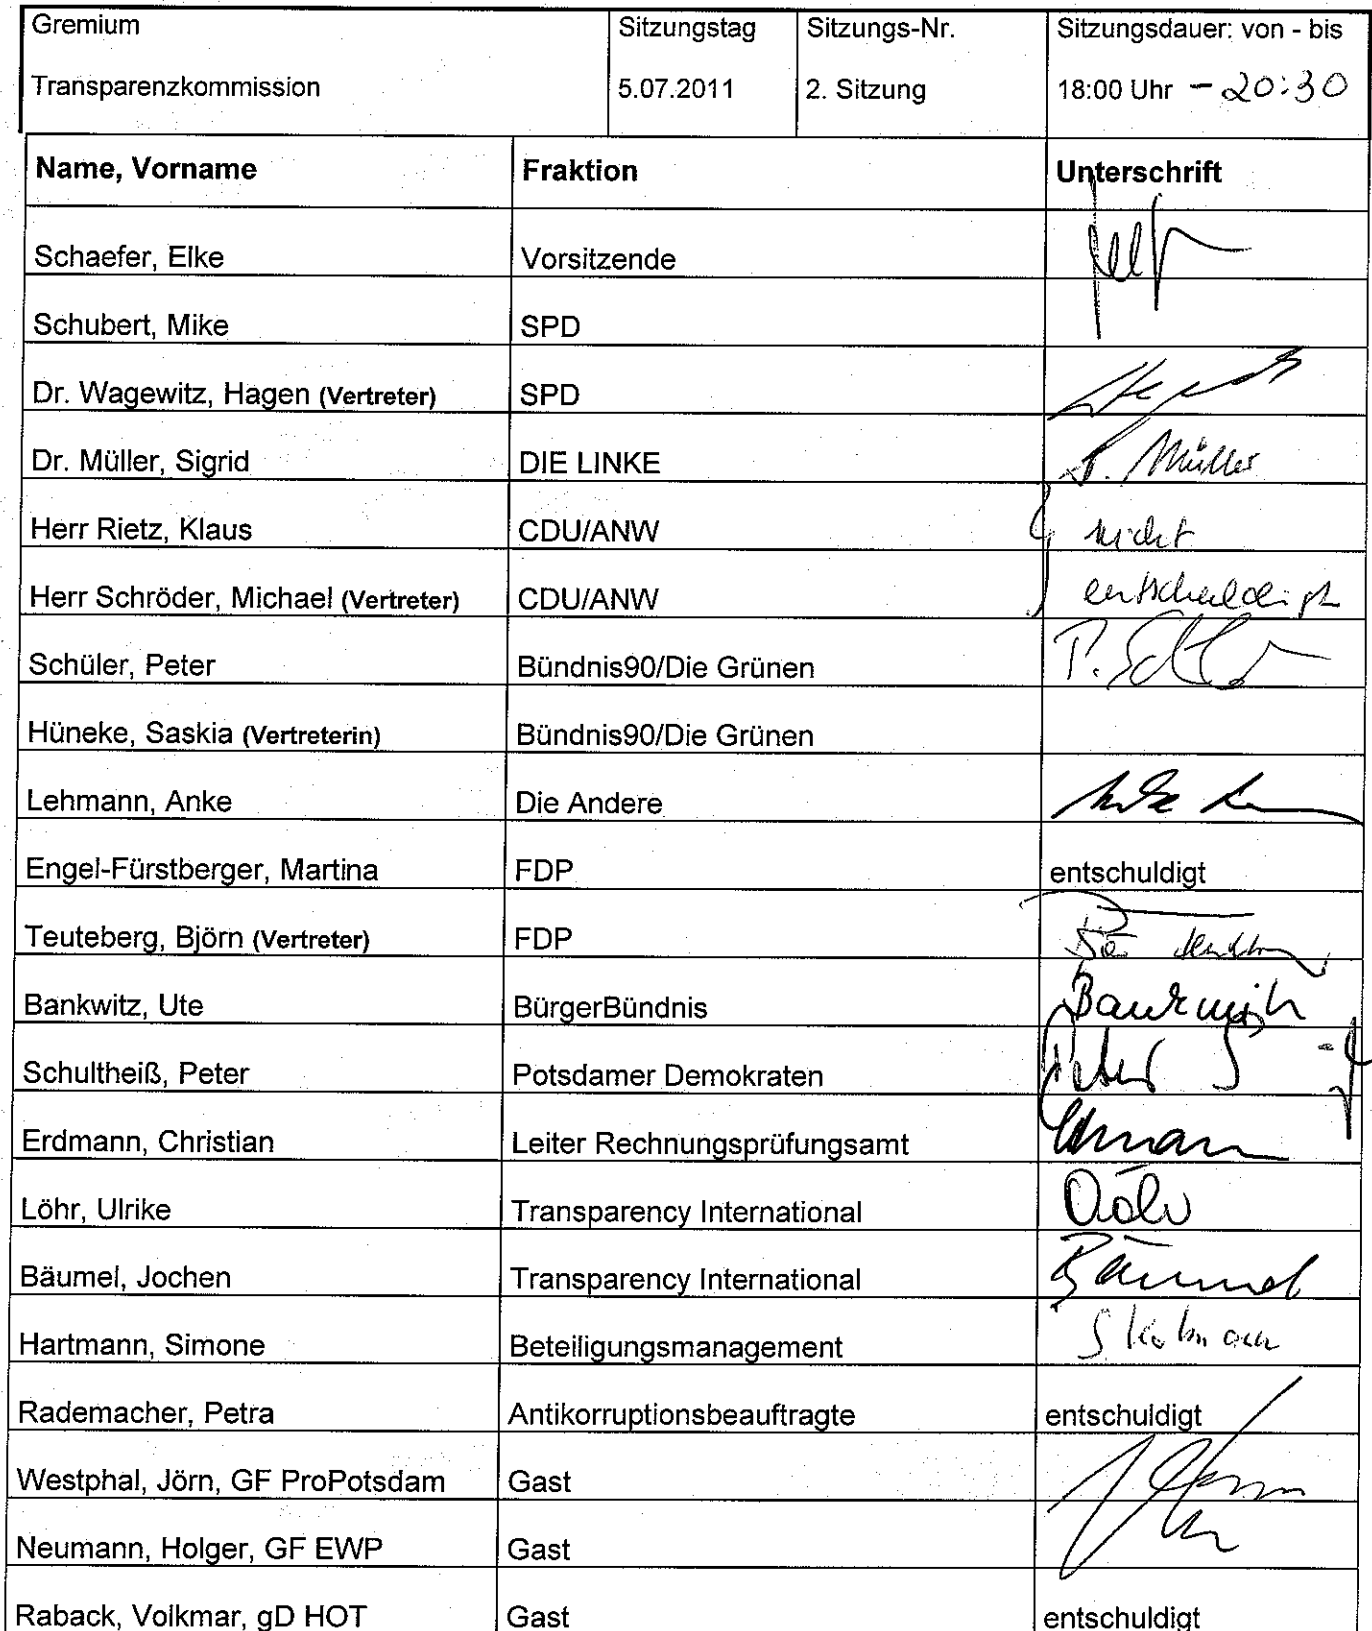 Gremium Sitzungstag Sitzungs-Nr. Sitzungsdauer: von - bis
Transparenzkommission 5.07.2011 2. Sitzung 18:00 Uhr - 20:30
Name, Vorname Fraktion Unterschrift
Schaefer, Elke Vorsitzende
Schubert, Mike SPD
Dr. Wagewitz, Hagen (Vertreter) SPD
Dr. Müller, Sigrid DIE LINKE S. Müller
Herr Rietz, Klaus CDU/ANW nicht
Herr Schröder, Michael (Vertreter) CDU/ANW entschuldigt
Schüler, Peter Bündnis90/Die Grünen
Hüneke, Saskia (Vertreterin) Bündnis90/Die Grünen
Lehmann, Anke Die Andere
Engel-Fürstberger, Martina FDP entschuldigt
Teuteberg, Björn (Vertreter) FDP
Bankwitz, Ute BürgerBündnis Bankwitz
Schultheiß, Peter Potsdamer Demokraten Peter S
Erdmann, Christian Leiter Rechnungsprüfungsamt
Löhr, Ulrike Transparency International
Bäumel, Jochen Transparency International Bäumel
Hartmann, Simone Beteiligungsmanagement
Rademacher, Petra Antikorruptionsbeauftragte entschuldigt
Westphal, Jörn, GF ProPotsdam Gast
Neumann, Holger, GF EWP Gast
Raback, Volkmar, gD HOT Gast entschuldigt